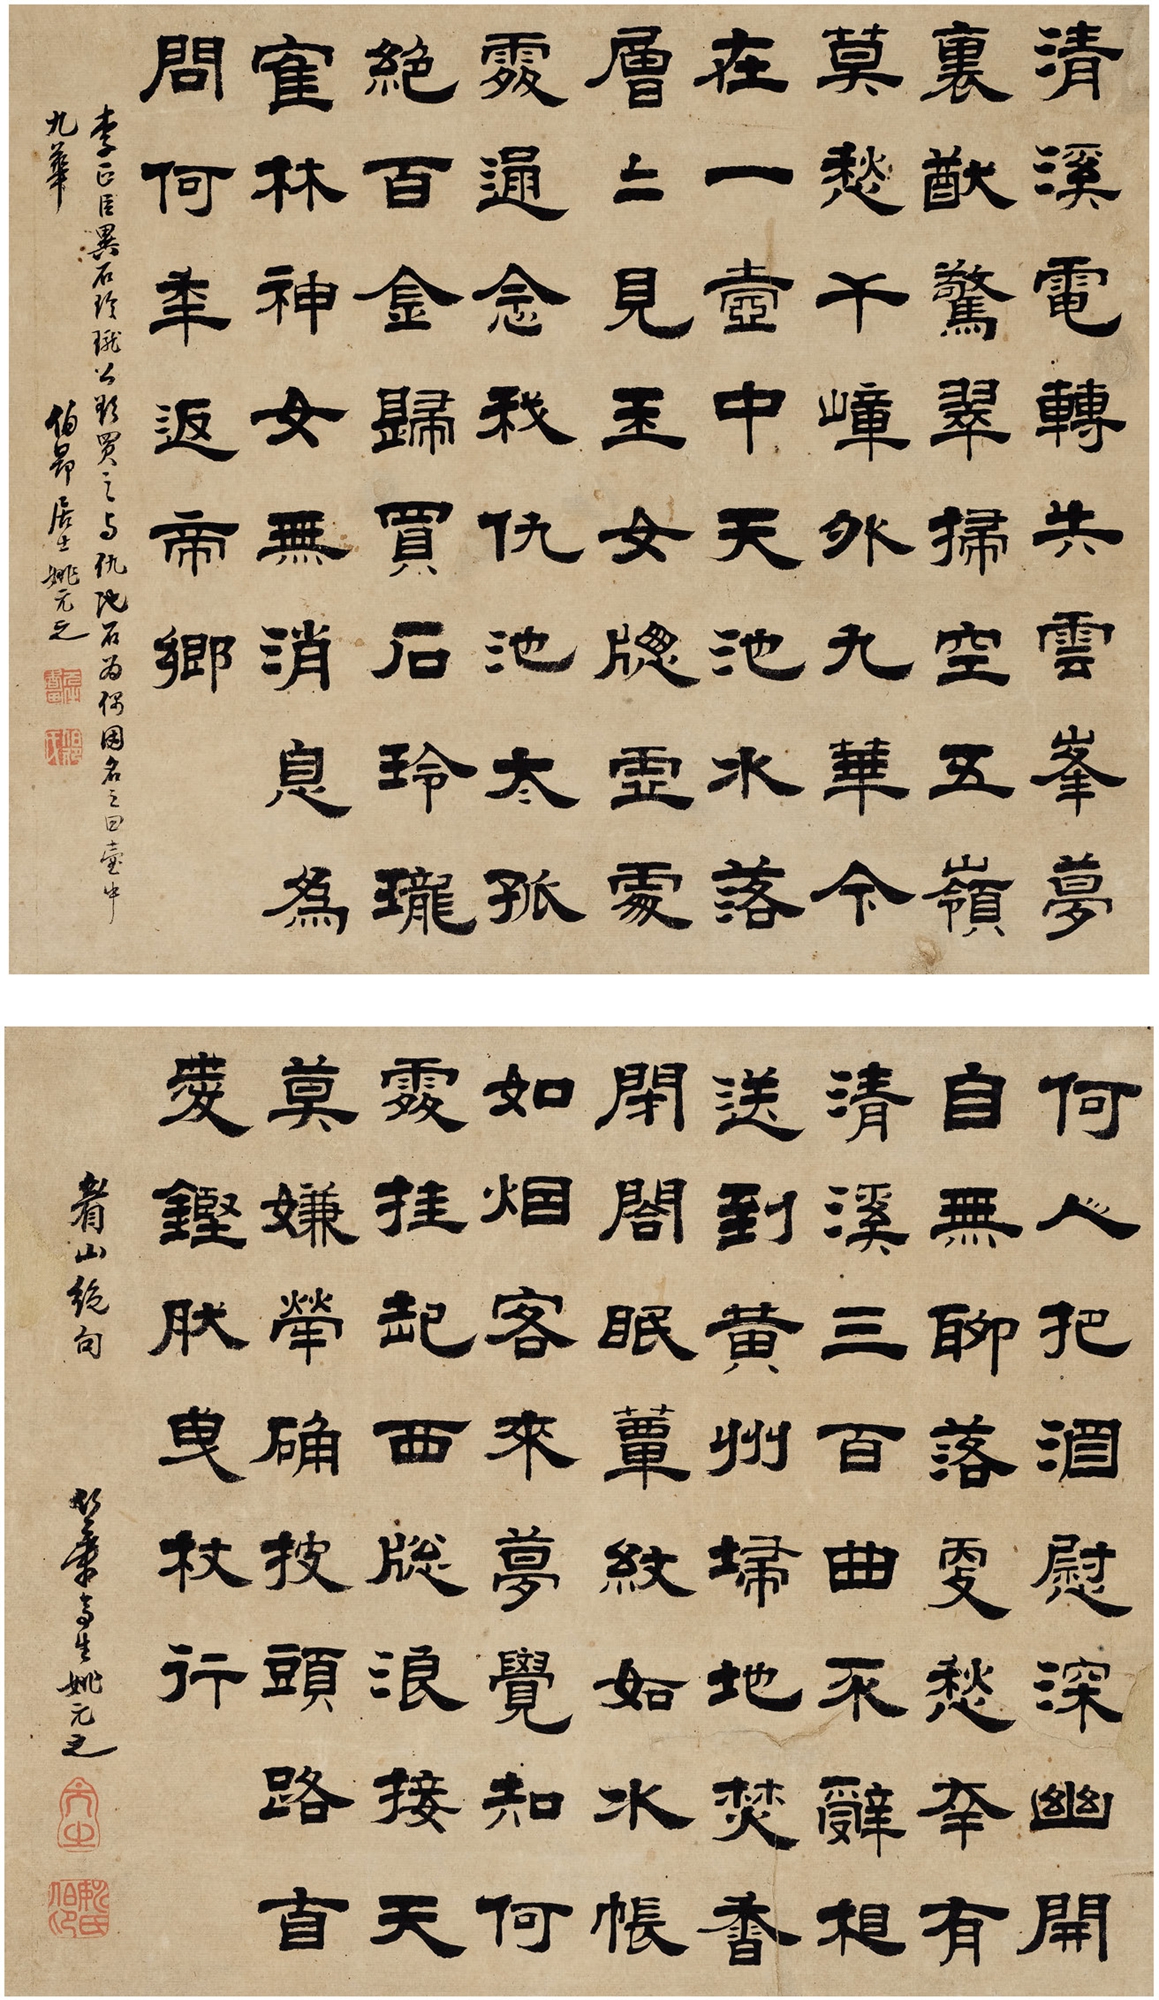 清溪電轉失雲峯夢
裏猷驚翠掃空五嶺
莫愁千嶂外九華今
在一壺中天池水落
層〻見玉女牕虛處
處通念我仇池太孤
絕百金歸買石玲瓏
隺林神女無消息為
問何年返帝鄉
李正臣異石玲瓏公欲買之与仇池石為偶因名之曰壺中
九華 伯昂居士姚元之
何人把酒慰深幽開
自無聊落更愁幸有
清溪三百曲不辭相
送到黄州掃地焚香
閉閤眠蕈紋如水帳
如烟客來夢覺知何
處挂起西牕浪接天
莫嫌犖确坡頭路自
愛鏗肰曳杖行
看山絕句 竹葉亭生姚元之